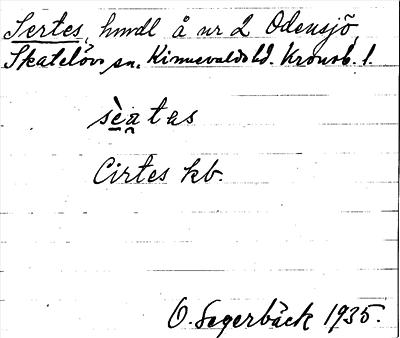 Sertes, hmdl å nr 2 Odensjö,
Skatelövs sn. Kinnevalds hd. Kronob. l.
sèa̯tas
Cirtes kb.
O. Segerbäck 1935.